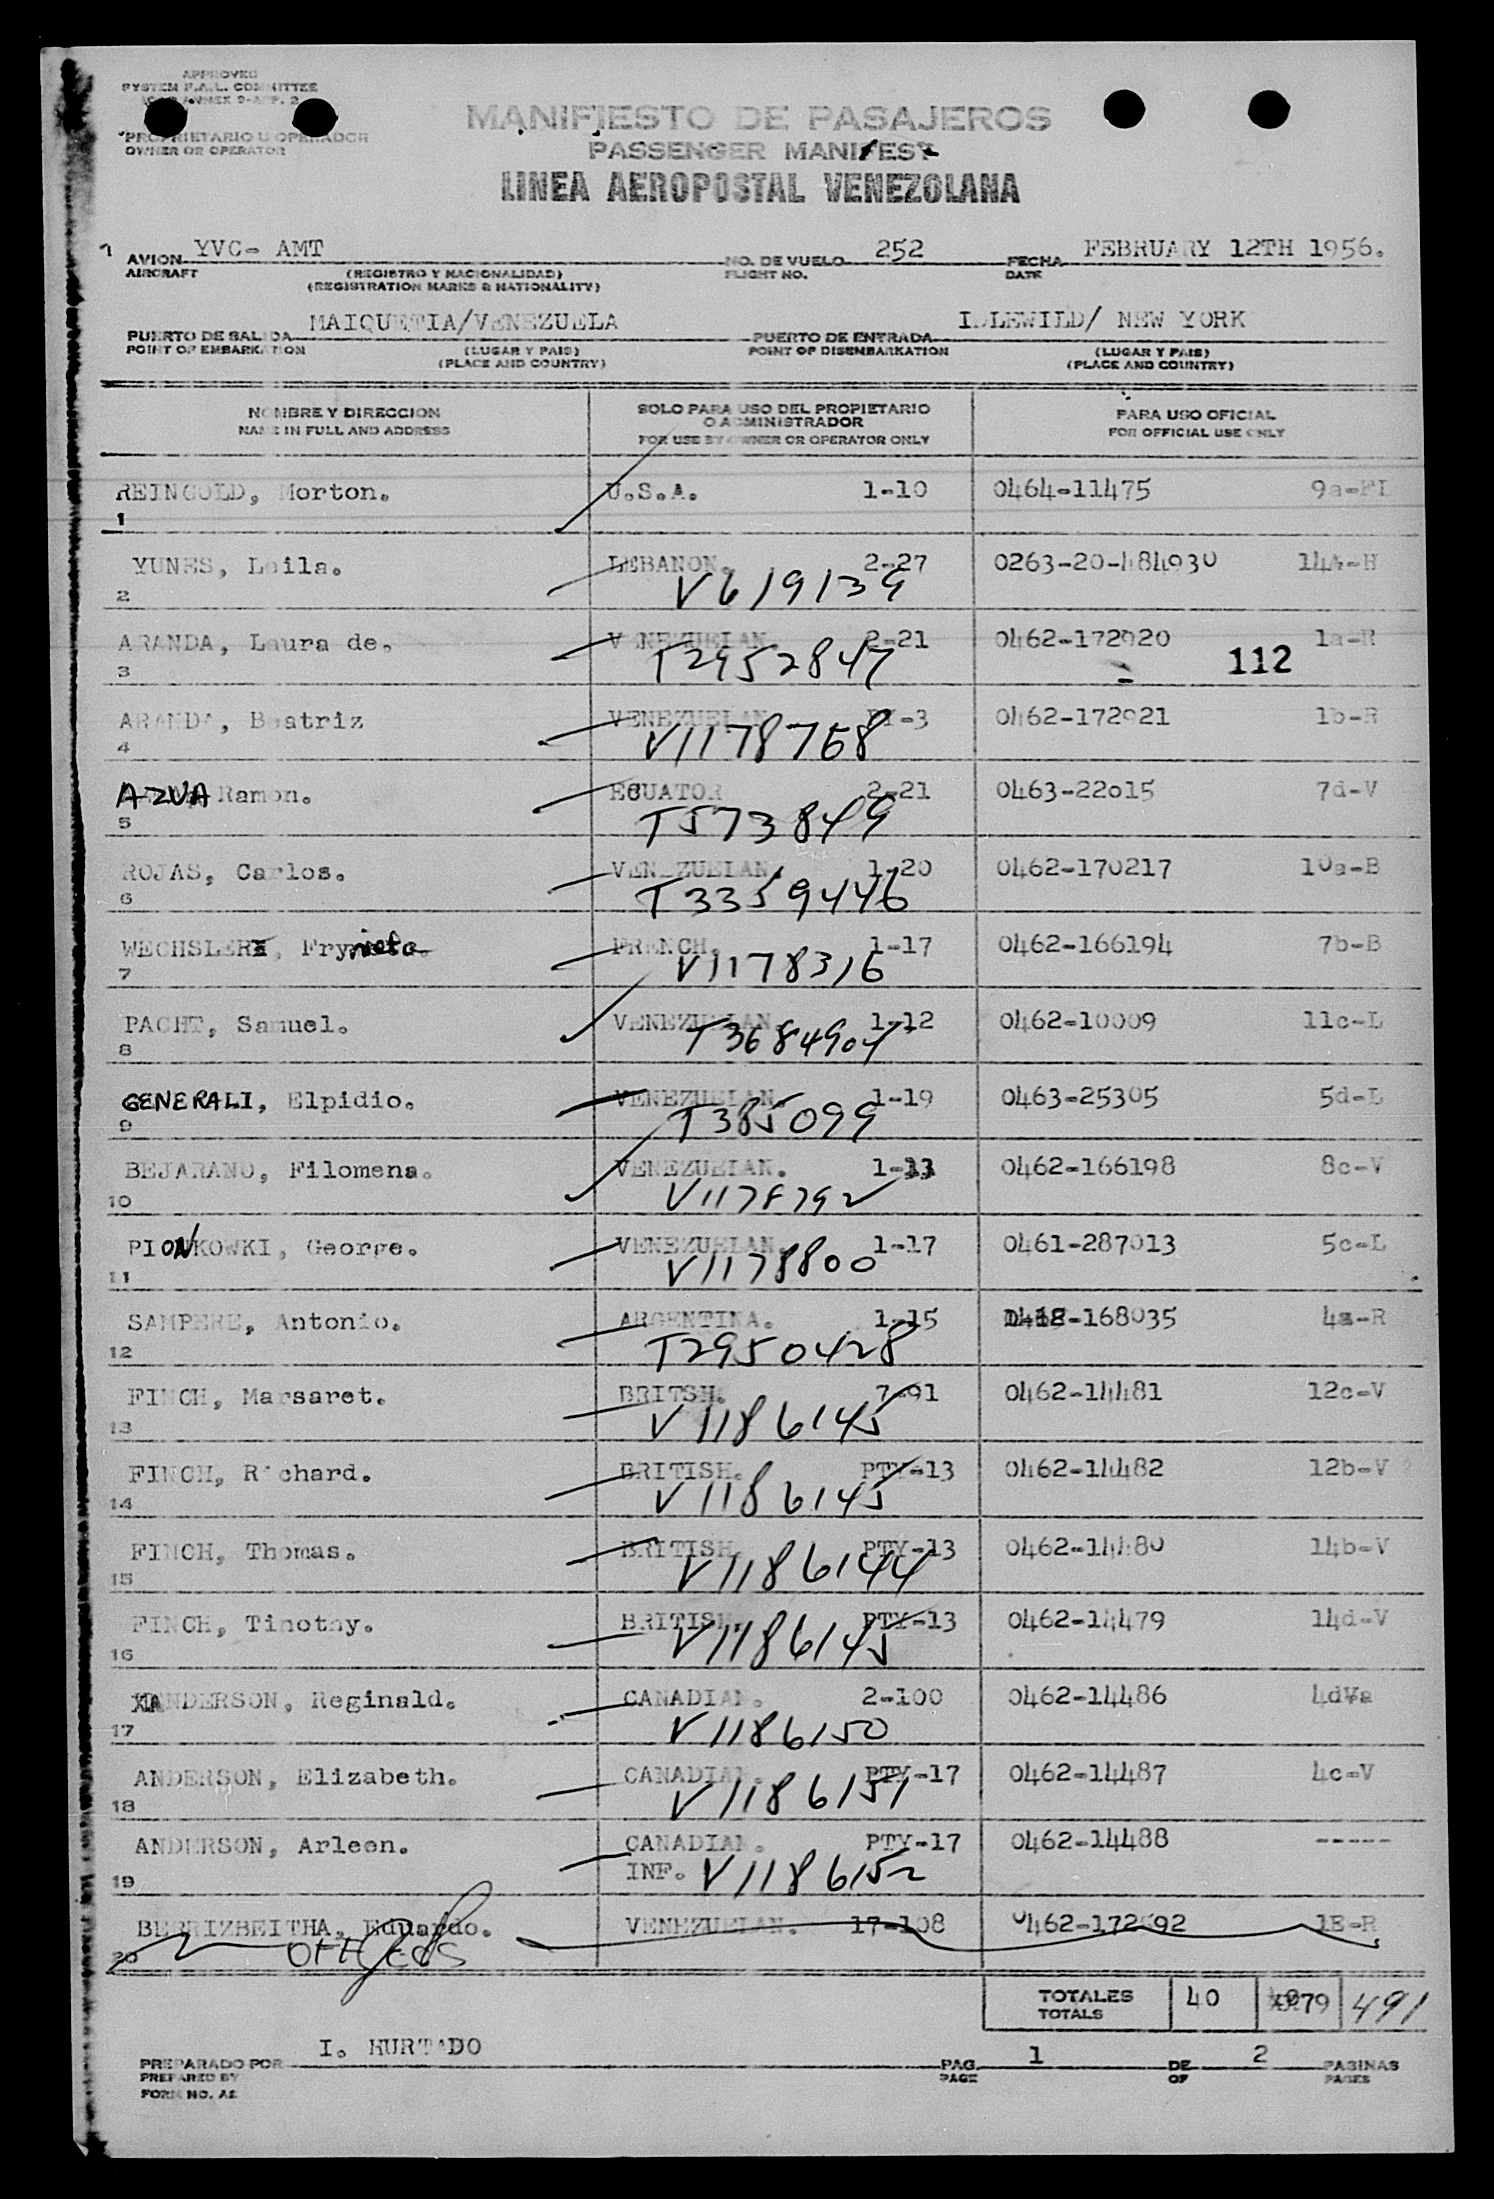 APPROVED
SYSTEM F.A.L. COMMITTEE
ANNEX 9-APP. 2
PROPRIETARIO U OPERADOR
OWNER OR OPERATOR
MANIFIESTO DE PASAJEROS
PASSENGER MANIFEST
LINEA AEROPOSTAL VENEZOLANA
AVION YVC- AMT NO. DE VUELO 252 FECHA FEBRUARY 12TH 1956.
AIRCRAFT (REGISTRO Y NACIONALIDAD) FLIGHT NO. DATE
(REGISTRATION MARKS & NATIONALITY)
PUERTO DE SALIDA MAIQUETIA/VENEZUELA PUERTO DE ENTRADA IDLEWILD/ NEW YORK
POINT OF EMBARKATION (LUGAR Y PAIS) POINT OF DISEMBARKATION (LUGAR Y PAIS)
(PLACE AND COUNTRY) (PLACE AND COUNTRY)
NOMBRE Y DIRECCION SOLO PARA USO DEL PROPIETARIO PARA USO OFICIAL
NAME IN FULL AND ADDRESS O ADMINISTRADOR FOR OFFICIAL USE ONLY
FOR USE BY OWNER OR OPERATOR ONLY
REINGOLD, Morton. U.S.A. 1-10 0464-11475 9a-FL
1
YUNES, Leila. LEBANON. 2-27 0263-20-484930 14A-H
2 V619139
ARANDA, Laura de. VENEZUELAN. 2-21 0462-172920 1a-R
3 T2952847 112
ARANDA, Beatriz VENEZUELAN -3 0462-172921 1b-R
4 V1178768
AZUA Ramon. ECUATOR 2-21 0463-22015 7d-V
5 T573849
ROJAS, Carlos. VENEZUELAN. 1-20 0462-170217 10a-B
6 T3359446
WECHSLER, Frynieta. FRENCH. 1-17 0462-166194 7b-B
7 V1178316
PACHT, Samuel. VENEZUELAN. 1-12 0462-10009 11c-L
8 T3684904
GENERALI, Elpidio. VENEZUELAN. 1-19 0463-25305 5d-L
9 T385099
BEJARANO, Filomena. VENEZUELAN. 1-13 0462-166198 8c-V
10 V1178792
PIONKOWKI, George. VENEZUELAN. 1-17 0461-287013 5c-L
11 V1178800
SAMPERE, Antonio. ARGENTINA. 1-15 -168035 4a-R
12 T2950428
FINCH, Marsaret. BRITSH. 7-91 0462-14481 12c-V
13 V1186145
FINCH, Richard. BRITISH. PTY-13 0462-14482 12b-V
14 V1186145
FINCH, Thomas. BRITISH. PTY-13 0462-14480 14b-V
15 V1186144
FINCH, Timothy. BRITISH. PTY-13 0462-14479 14d-V
16 V1186145
ANDERSON, Reginald. CANADIAN. 2-100 0462-14486 4dVa
17 V1186150
ANDERSON, Elizabeth. CANADIAN. PTY-17 0462-14487 4c-V
18 V1186151
ANDERSON, Arleen. CANADIAN. PTY-17 0462-14488 -----
19 INF. V1186152
BERRIZBEITHA, Eduardo. VENEZUELAN. 17-108 0462-172692 1E-R
20
TOTALES 40 79 491
TOTALS
PREPARADO POR I. HURTADO PAG. 1 DE 2 PAGINAS
PREPARED BY PAGE OF PAGES
FORM NO. A2